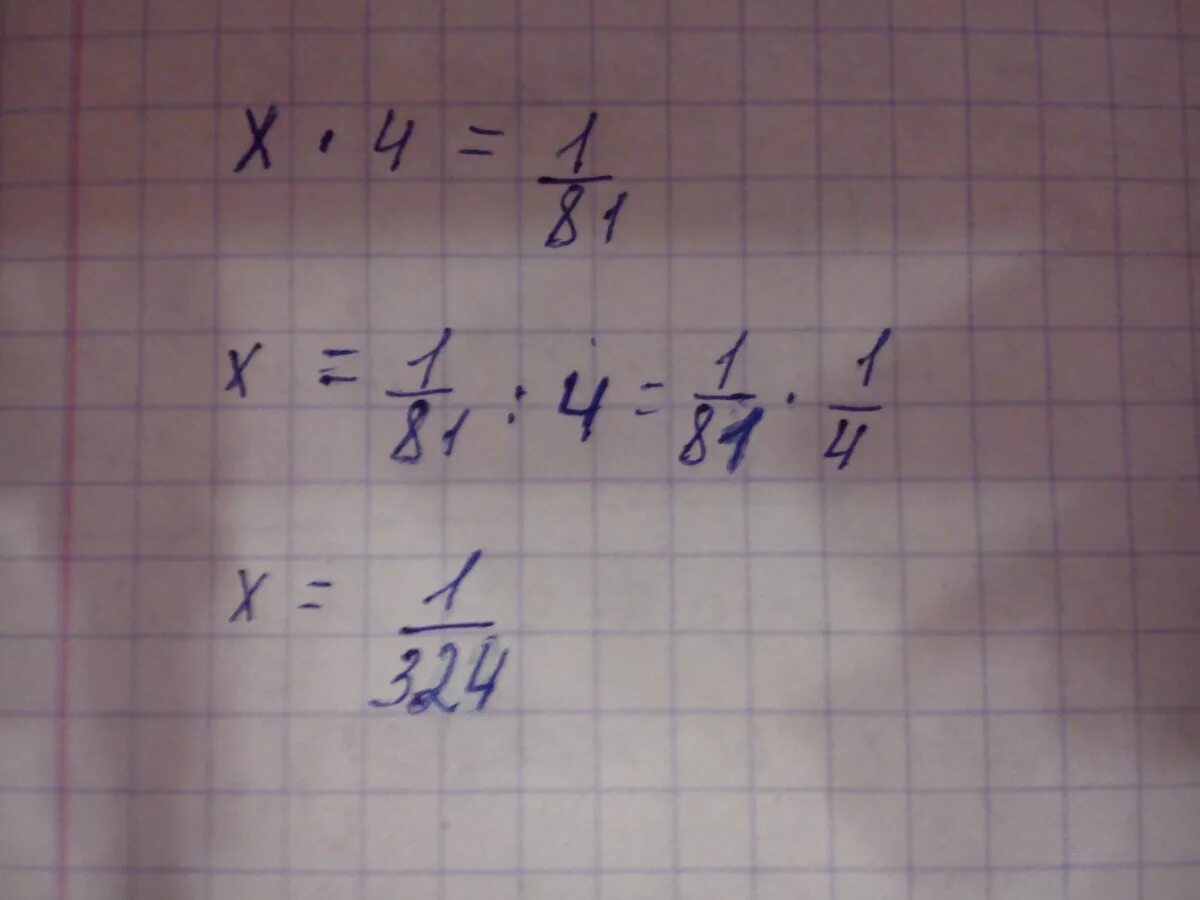 x · 4 = 1/81
x = 1/81 : 4 = 1/81 · 1/4
x = 1/324